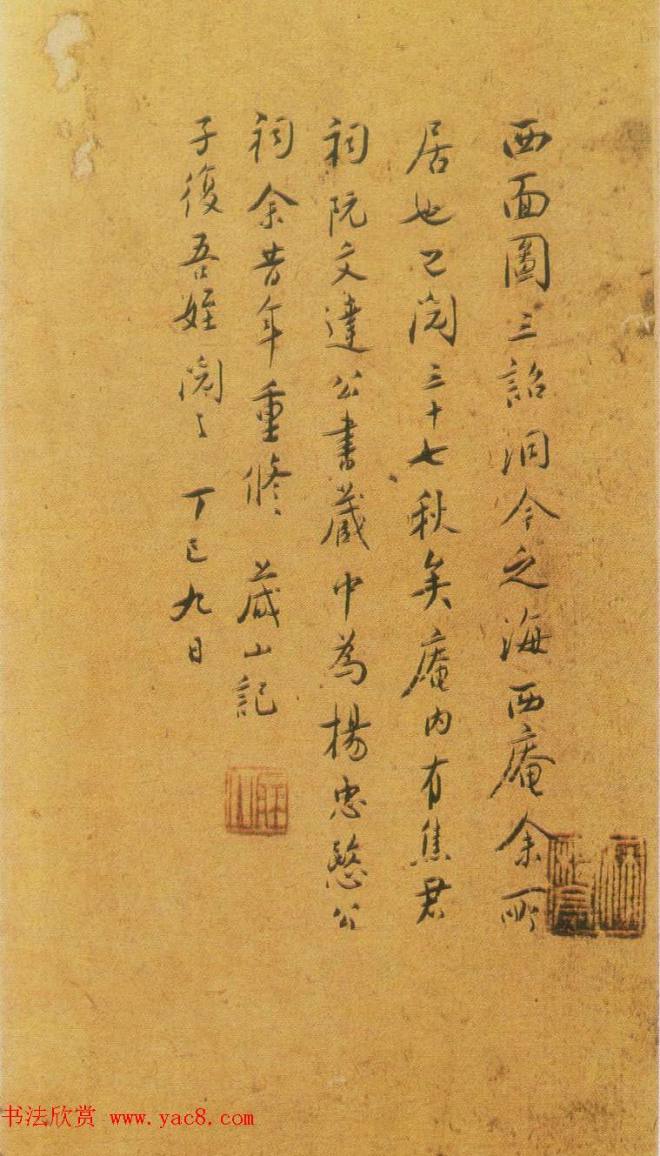 西面圖三詔洞今之海西庵余所
居也已閱三十七秋矣庵內有焦君
祠阮文達公書藏中為楊忠愍公
祠余昔年重修 藏山記
子復吾姪閱之 丁巳九日
书法欣赏 www.yac8.com